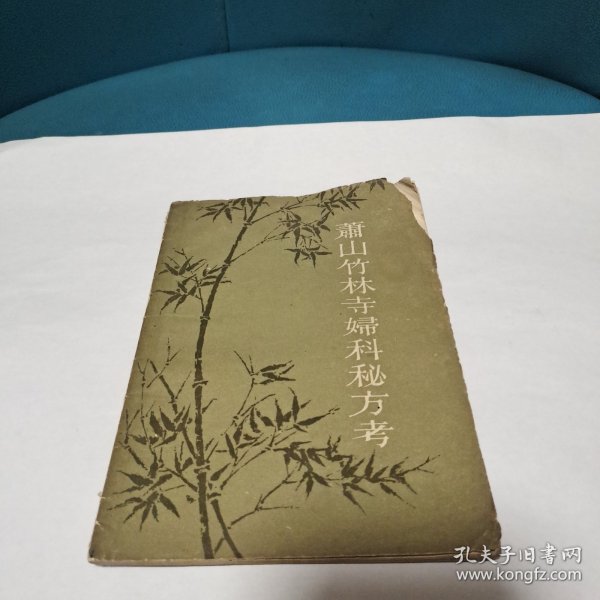 蕭山竹林寺婦科秘方考
孔夫子旧書网
www.kongfz.com